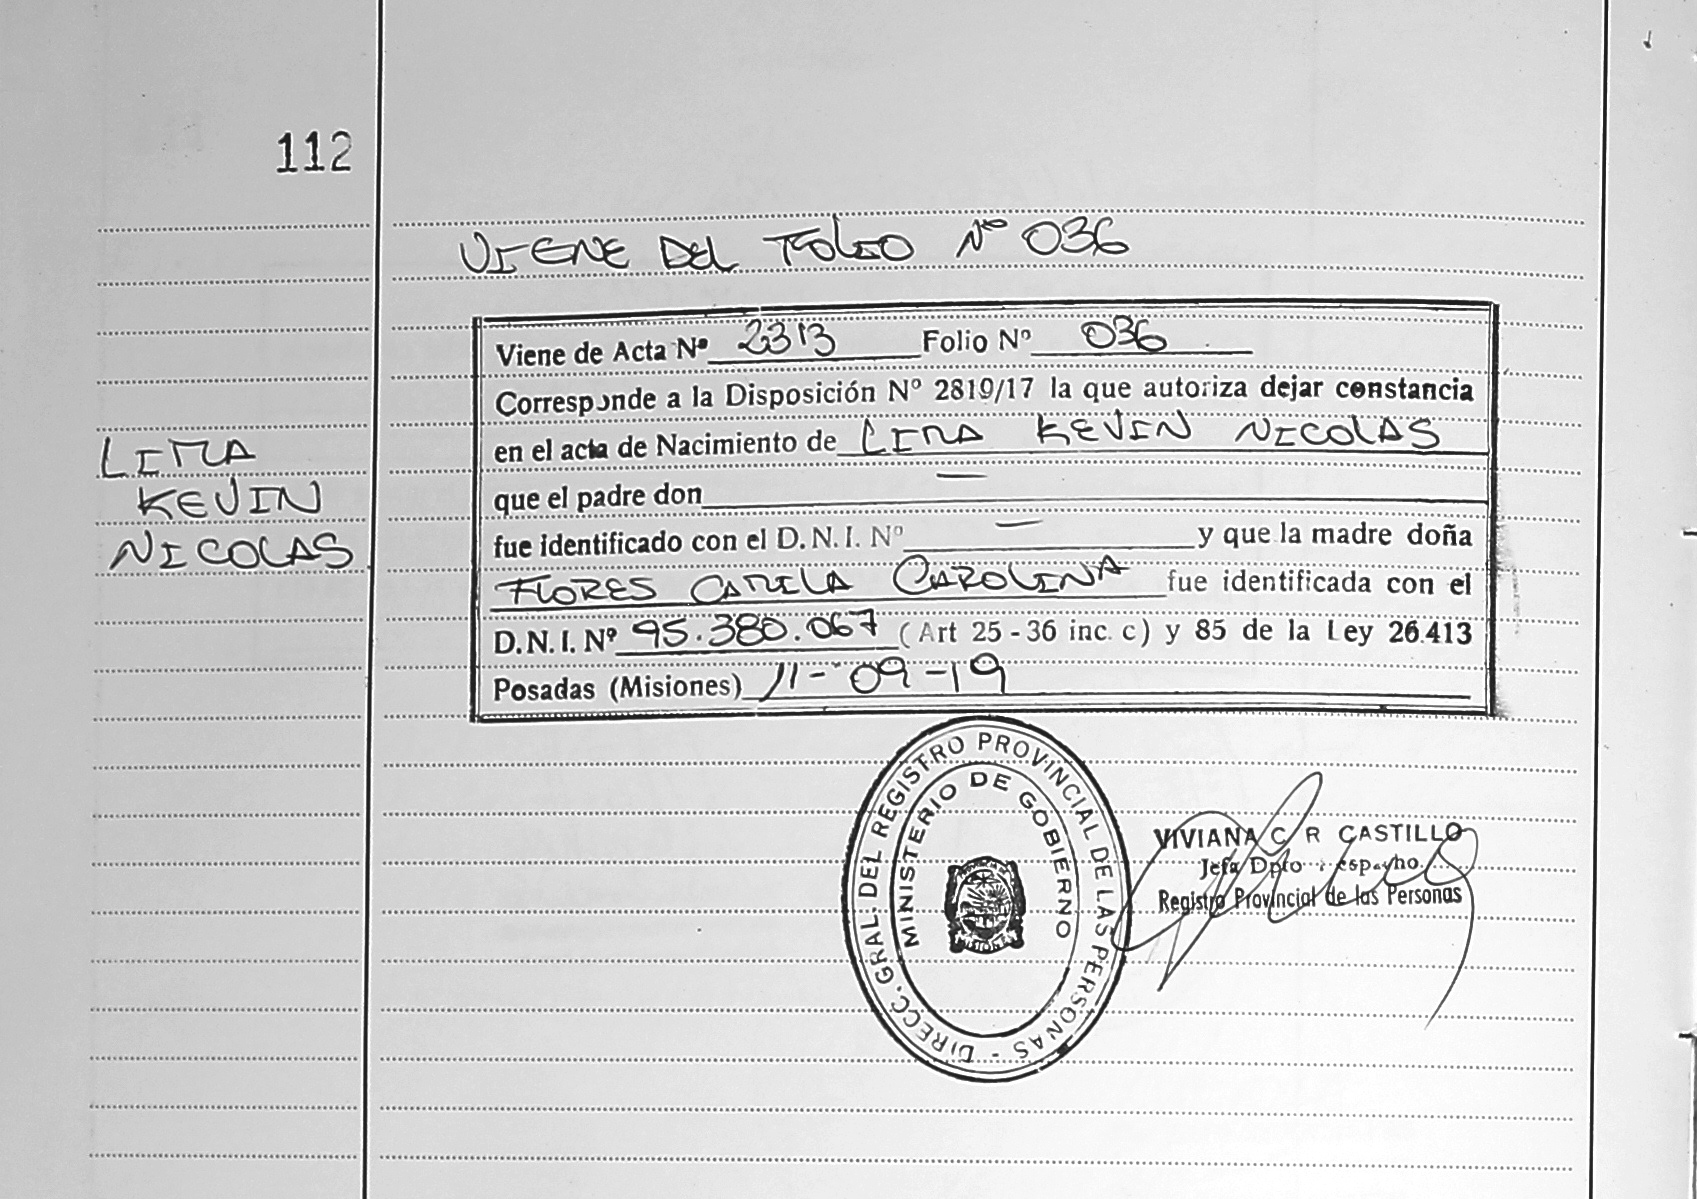 112
VIENE DEL FOLIO Nº 036
Viene de Acta Nº 2313 Folio Nº 036
Corresponde a la Disposición Nº 2819/17 la que autoriza dejar constancia
en el acta de Nacimiento de LIMA KEVIN NICOLAS
que el padre don —
fue identificado con el D.N.I. Nº — y que la madre doña
FLORES CAMILA CAROLINA fue identificada con el
D.N.I. Nº 95.380.067 (Art 25-36 inc. c) y 85 de la Ley 26.413
Posadas (Misiones) 11-09-19
LIMA
KEVIN
NICOLAS
DIRECC. GRAL. DEL REGISTRO PROVINCIAL DE LAS PERSONAS -
MINISTERIO DE GOBIERNO
MISIONES
VIVIANA C R CASTILLO
Jefa Dpto
Registro Provincial de las Personas